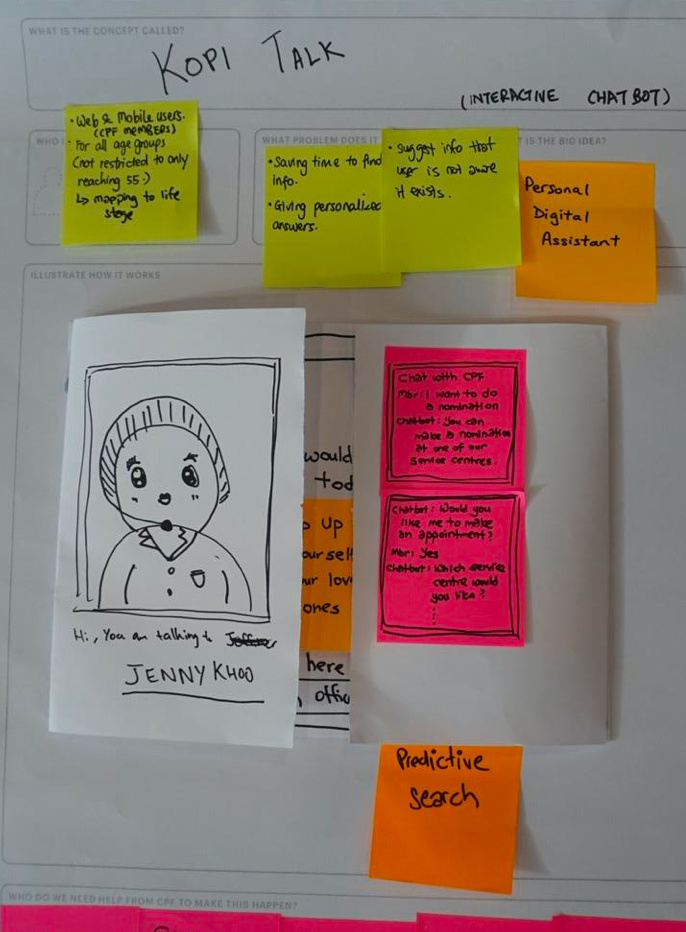 WHAT IS THE CONCEPT CALLED?
KOPI TALK
(INTERACTIVE CHATBOT)
WHO
• Web & Mobile users.
(CPF MEMBERS)
• For all age groups
(not restricted to only
reaching 55.)
↳ mapping to life
stage
WHAT PROBLEM DOES IT
• Saving time to find
info.
• Giving personalized
answers.
• Suggest info that
user is not aware
it exists.
IS THE BIG IDEA?
Personal
Digital
Assistant
ILLUSTRATE HOW IT WORKS
Hi, You are talking to
JENNY KHOO
would
tod
up
ourself
ur lov
ones
here
offic
Chat with CPF
Mbr: I want to do
a nomination
Chatbot: You can
make a nomination
at one of our
service centres.
Chatbot: Would you
like me to make
an appointment?
Mbr: Yes
Chatbot: Which service
centre would
you like?
Predictive
Search
WHO DO WE NEED HELP FROM CPF TO MAKE THIS HAPPEN?